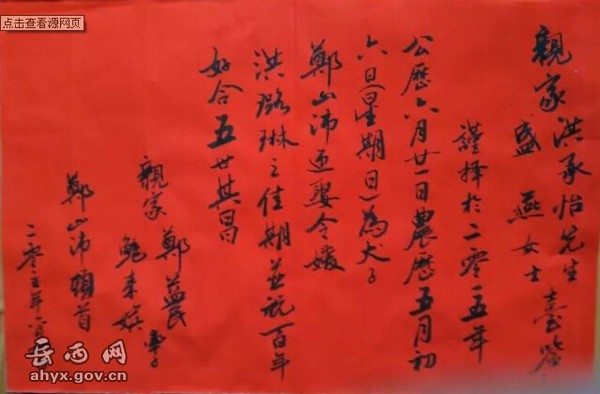 点击查看源网页
親家洪承怡先生
盛燕女士臺鉴
謹择於二零一五年
公歷六月廿一日農歷五月初
六日(星期日)為犬子
鄭山沛迎娶令嫒
洪璐琳之佳期並祝百年
好合五世其昌
親家鄭益民
鲍来娣
鄭山沛頓首
二零一五年六月
岳西网
ahyx.gov.cn